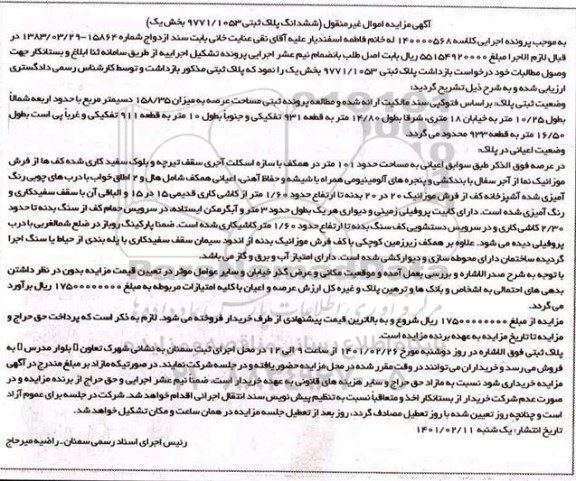 آگهی مزایده اموال غیرمنقول (ششدانگ پلاک ثبتی ۹۷۷۱/۱۰۵۳ بخش یک)
به موجب پرونده اجرایی کلاسه ۱۴۰۰۰۰۵۶۸ له خانم فاطمه اسفندیار علیه آقای نقی عنایت خانی بابت سند ازدواج شماره ۱۵۸۶۴-۱۳۸۳/۰۳/۲۹ در
قبال لازم الاجرا مبلغ ۵۵۱۵۴۹۲۰۰۰۰ ریال بابت اصل طلب بانضمام نیم عشر اجرایی پرونده تشکیل اجراییه از طریق سامانه ثنا ابلاغ و بستانکار جهت
وصول مطالبات خود درخواست بازداشت پلاک ثبتی ۹۷۷۱/۱۰۵۳ بخش یک را نمود که پلاک ثبتی مذکور بازداشت و توسط کارشناس رسمی دادگستری
ارزیابی شده و به شرح ذیل تشریح گردید:
وضعیت ثبتی پلاک: براساس فتوکپی سند مالکیت ارائه شده و مطالعه پرونده ثبتی مساحت عرصه به میزان ۱۵۸/۳۵ دسیمتر مربع با حدود اربعه شمالاً
بطول ۱۰/۲۵ متر به خیابان ۱۸ متری، شرقا بطول ۱۴/۸۰ متر به قطعه ۹۳۱ تفکیکی و جنوباً بطول ۱۰ متر به قطعه ۹۱۱ تفکیکی و غرباً پی است بطول
۱۶/۵۰ متر به قطعه ۹۳۳ محدود می گردد.
وضعیت اعیانی در پلاک:
در عرصه فوق الذکر طبق سوابق اعیانی به مساحت حدود ۱۰۱ متر در همکف با سازه اسکلت آجری سقف تیرچه و بلوک سفید کاری شده کف ها از فرش
موزائیک نما از آجر سفال با بندکشی و پنجره های آلومینیومی همراه با شیشه و حفاظ آهنی، اعیانی همکف شامل هال و ۲ اطاق خواب با درب های چوبی رنگ
آمیزی شده آشپزخانه کف از فرش موزائیک ۲۰ در ۲۰ بدنه تا ارتفاع حدود ۱/۶۰ متر از کاشی کاری قدیمی ۱۵ در ۱۵ و الباقی آن با سقف سفیدکاری و
رنگ آمیزی شده است. دارای کابیت پروفیلی زمینی و دیواری هر یک بطول حدود ۳ متر و آبگرمکن ایستاده، در سرویس حمام کف از سنگ بدنه تا حدود
۲/۳۰ کاشی کاری و در سرویس دستشویی کف سنگ بدنه تا ارتفاع حدود ۱/۶۰ متر کاشیکاری شده است. ضمنا پارکینگ روباز در ضلع شمالغربی با درب
پروفیلی دیده می شود. علاوه بر همکف زیرزمین کوچکی با کف فرش موزائیک بدنه از اندود سیمان سقف سفیدکاری با پله بندی از حیاط یا سنگ اجرا
گردیده ساختمان دارای محوطه سازی و دیوارکشی شده است. دارای امتیاز آب و برق و گاز می باشد.
با توجه به شرح صدر الاشاره و بررسی بعمل آمده و موقعیت مکانی و عرض گذر خیابان و سایر عوامل موثر در تعیین قیمت مزایده بدون در نظر داشتن
بدهی های احتمالی به اشخاص و بانک ها و ترهین پلاک و غیره کل ارزش عرصه و اعیان با کلیه امتیازات مربوطه به مبلغ ۱۷۵۰۰۰۰۰۰۰۰ ریال برآورد
می گردد.
مزایده از مبلغ ۱۷۵۰۰۰۰۰۰۰۰ ریال شروع و به بالاترین قیمت پیشنهادی از طرف خریدار فروخته می شود. لازم به ذکر است که پرداخت حق حراج و
مزایده تا تاریخ مزایده به عهده برنده مزایده است.
پلاک ثبتی فوق الاشاره در روز دوشنبه مورخ ۱۴۰۱/۰۲/۲۶ از ساعت ۹ الی ۱۲ در محل اجرای ثبت سمنان به نشانی شهرک تعاون بلوار مدرس به
فروش می رسد و خریداران می توانند در وقت مقرر شده در محل مزایده حضور یافته و در جلسه شرکت نمایند. در صورتیکه مازاد بر مبلغ مندرج در آگهی
مزایده خریداری شود نسبت به مازاد حق حراج و سایر هزینه های قانونی به عهده خریدار است. ضمناً نیم عشر اجرایی و حق حراج از برنده مزایده و در
صورت عدم شرکت خریدار از بستانکار اخذ و متعاقباً نسبت به تنظیم پیش نویس سند انتقال اجرائی اقدام خواهد شد. شرکت در جلسه برای عموم آزاد
است و چنانچه روز تعیین شده با روز تعطیل مصادف گردد، روز بعد از تعطیل جلسه مزایده در همان ساعت و مکان تشکیل خواهد شد.
تاریخ انتشار: یک شنبه ۱۴۰۱/۰۲/۱۱
رئیس اجرای اسناد رسمی سمنان- راضیه میرحاج